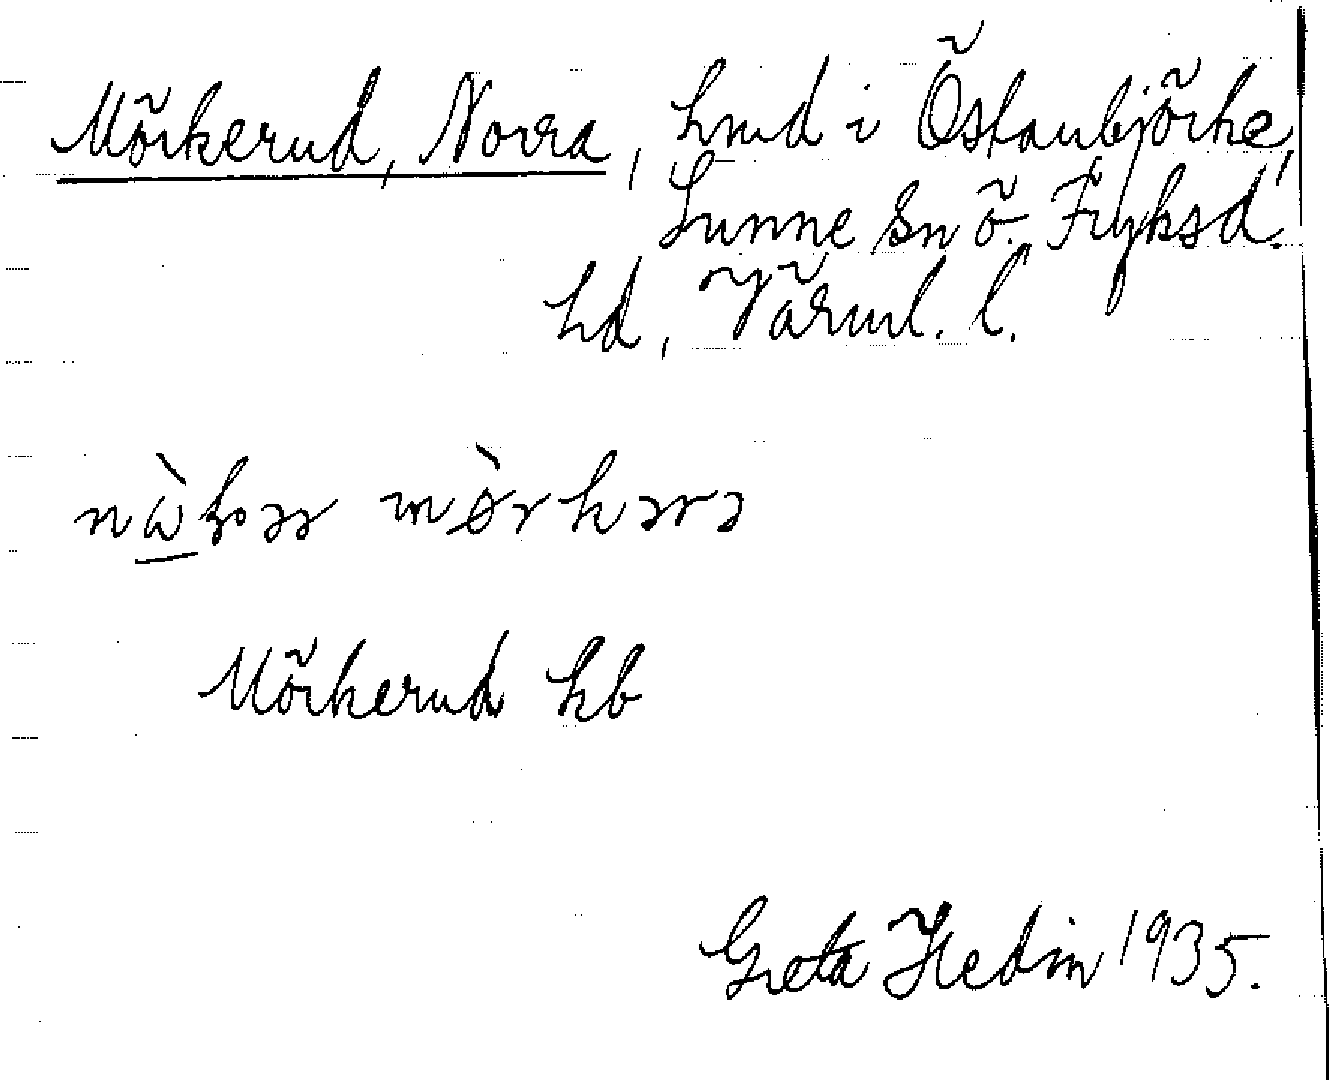 Mörkerud, Norra, hmd i Östanbjörke,
Sunne sn ö. Fryksd.
hd, Värml. l.
mörkərə
Mörkerud kb
Greta Hedin 1935.